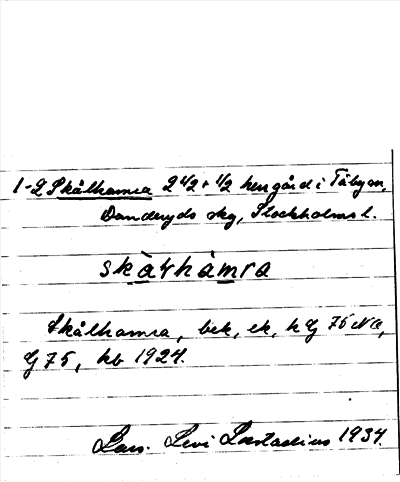 1-2 Skålhamra 2 1/2 + 1/2 herrgård i Täby sn,
Danderyds skg, Stockholms l.
skàrhàmra
Skålhamra, bek, ek, h G 75 Na,
G 75, hb 1924.
Lars Levi Læstadius 1934.